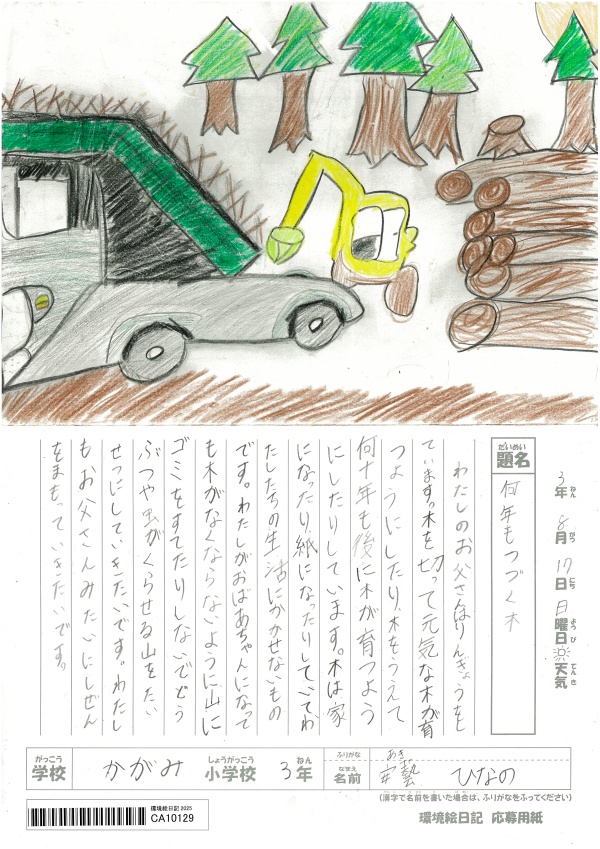 3年 8月 17日 日曜日 天気
ねん がつ にち ようび てんき
だいめい
題名
何年もつづく木
わたしのお父さんはりんぎょうをし
ています。木を切って元気な木が育
つようにしたり、木をうえて
何十年も後に木が育つよう
にしたりしています。木は家
になったり、紙になったりしていてわ
たしたちの生活にかかせないもの
です。わたしがおばあちゃんになって
も木がなくならないように山に
ゴミをすてたりしないでどう
ぶつや虫がくらせる山をたい
せつにしていきたいです。わたし
もお父さんみたいにしぜん
をまもっていきたいです。
がっこう しょうがっこう ねん ふりがな あき
学校 かがみ 小学校 3年 なまえ 名前 安藝 ひなの
(漢字で名前を書いた場合は、ふりがなをふってください)
環境絵日記 2025
CA10129
環境絵日記 応募用紙